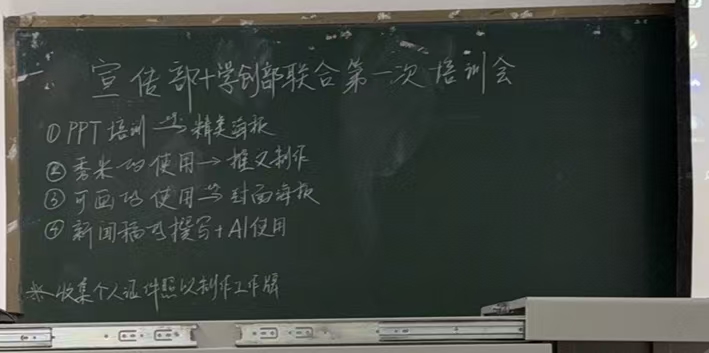 宣传部+学创部联合第一次培训会
①PPT培训→精美海报
②秀米的使用→推文制作
③可画的使用→封面海报
④新闻稿的撰写+AI使用
※收集个人证件照以制作工作牌